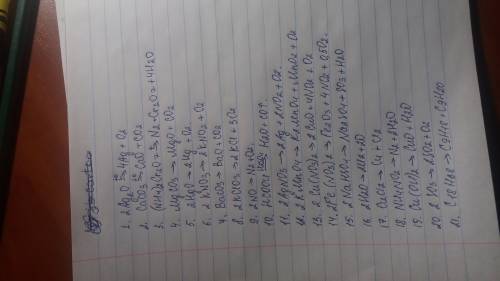 1. 2Ag2O → 4Ag + O2
2. CaCO3 → CaO + CO2
3. (NH4)2Cr2O7 → N2 + Cr2O3 + 4H2O
4. MgCO3 → MgO + CO2
5. 2HgO → 2Hg + O2
6. 2KNO3 → 2KNO2 + O2
7. BaCO3 → BaO + CO2
8. 2KClO3 → 2KCl + 3O2
9. 2NO → N2 + O2
10. HCOOH → H2O + CO↑
11. 2AgNO3 → 2Ag + 2NO2 + O2
12. 2KMnO4 → K2MnO4 + MnO2 + O2
13. 2Cu(NO3)2 → 2CuO + 4NO2 + O2
14. 2Fe(NO3)2 → Fe2O3 + 4NO2 + 0,5O2
15. 2NaHSO3 → Na2SO3 + SO2 + H2O
16. 2H2O → 2H2 + O2
17. CuCl2 → Cu + Cl2
18. NH4NO2 → N2 + 2H2O
19. Cu(OH)2 → CuO + H2O
20. 2SO3 → 2SO2 + O2
21.